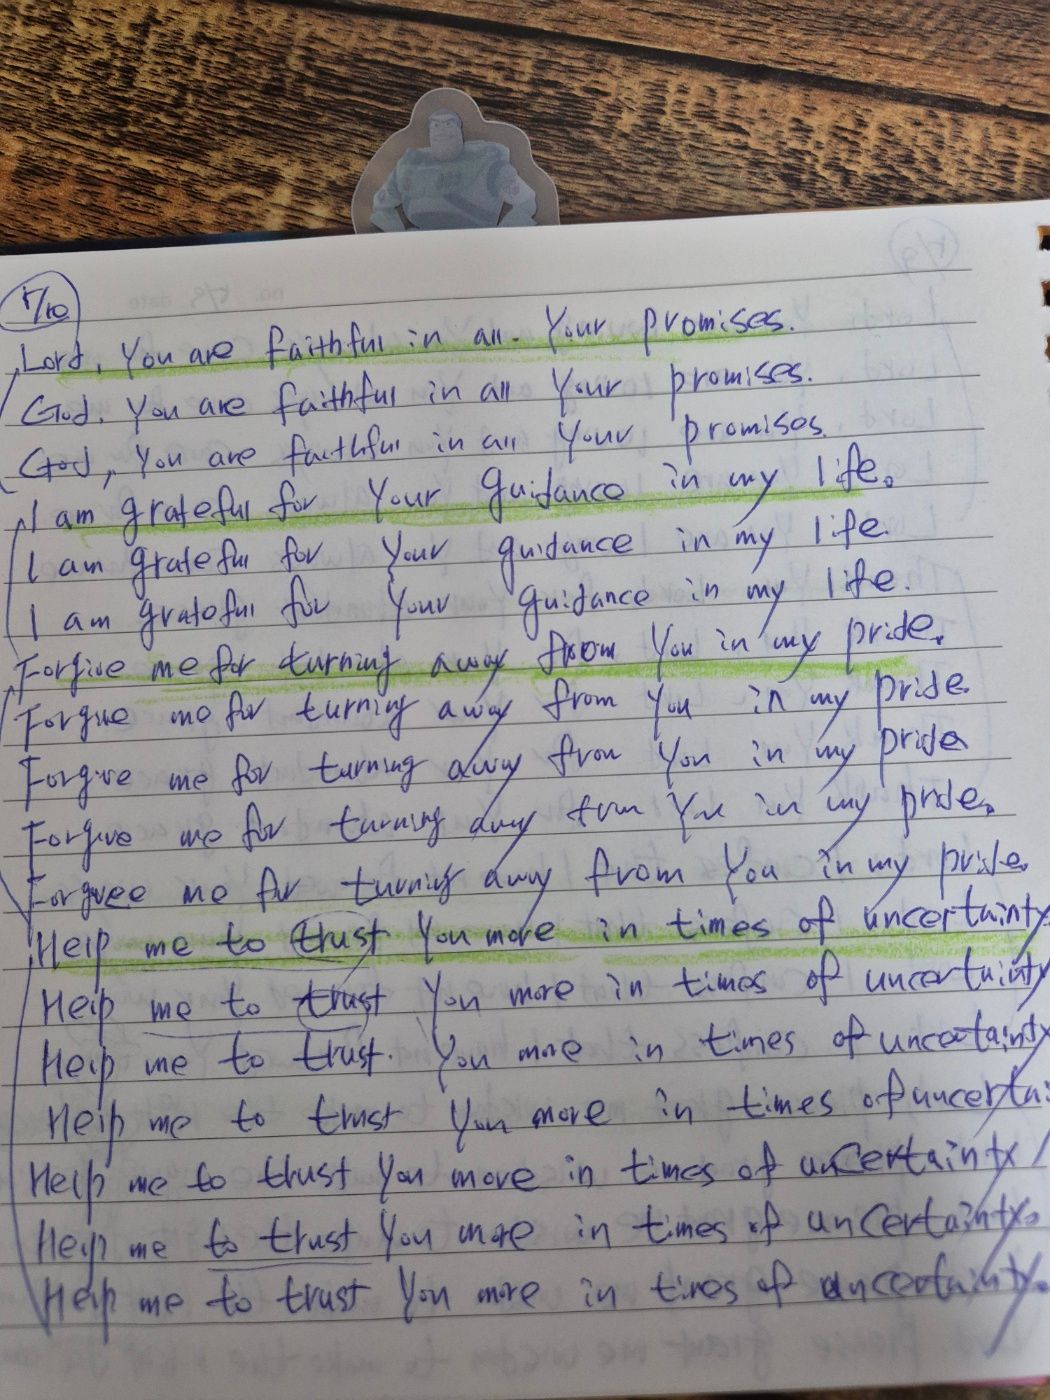 Lord, You are faithful in all Your promises.
God, You are faithful in all Your promises.
God, You are faithful in all Your promises.
I am grateful for Your guidance in my life.
I am grateful for Your guidance in my life.
I am grateful for Your guidance in my life.
Forgive me for turning away from You in my pride.
Forgive me for turning away from You in my pride.
Forgive me for turning away from You in my pride
Forgive me for turning away from You in my pride.
Forgive me for turning away from You in my pride.
Help me to trust You more in times of uncertainty
Help me to trust You more in times of uncertainty
Help me to trust. You more in times of uncertainty
Help me to trust You more in times of uncertai
Help me to trust You more in times of uncertainty
Help me to trust You more in times of uncertainty.
Help me to trust You more in times of uncertainty.